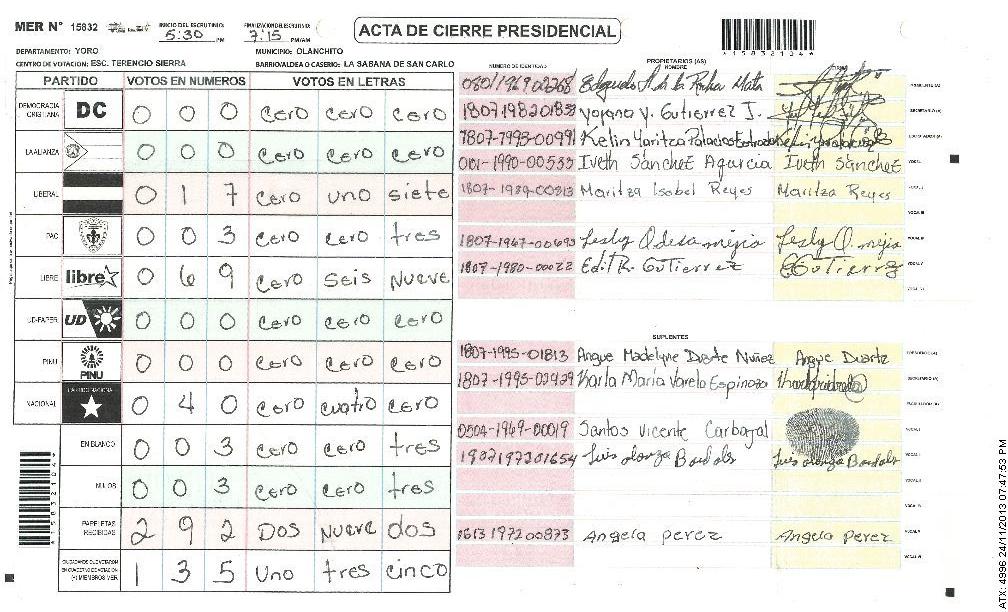 MER N° 15832
INICIO DEL ESCRUTINIO: 5:30 PM
FINALIZACION DEL ESCRUTINIO: 7:15 PM/AM
ACTA DE CIERRE PRESIDENCIAL
*15832104*
DEPARTAMENTO: YORO
MUNICIPIO: OLANCHITO
CENTRO DE VOTACION: ESC. TERENCIO SIERRA
BARRIO/ALDEA O CASERIO: LA SABANA DE SAN CARLO
PARTIDO VOTOS EN NUMEROS VOTOS EN LETRAS
DEMOCRACIA CRISTIANA DC 0 0 0 cero cero cero
LA ALIANZA 0 0 0 cero cero cero
LIBERAL 0 1 7 cero uno siete
PAC 0 0 3 cero cero tres
LIBRE libre 0 6 9 cero seis Nueve
UD-FAPER UD 0 0 0 cero cero cero
PINU PINU 0 0 0 cero cero cero
NACIONAL 0 4 0 cero cuatro cero
EN BLANCO 0 0 3 cero cero tres
NULOS 0 0 3 cero cero tres
PAPELETAS RECIBIDAS 2 9 2 Dos Nueve dos
CIUDADANOS QUE VOTARON EN CUADERNO DE VOTACION (+) MIEMBROS MER 1 3 5 Uno tres cinco
*15832104*
NUMERO DE IDENTIDAD
PROPIETARIOS (AS)
NOMBRE
PRESIDENTE (A)
Yojana Y. Gutierrez J.
SECRETARIO (A)
1807-1993-00991 Kelin Yaritza Palacios
ESCRUTADOR (A)
1990-00533 Iveth Sánchez Agurcia Iveth Sánchez
VOCAL I
Maritza Isabel Reyes Maritza Reyes
VOCAL II
VOCAL III
1807-1967-00693 Lesly Odesa mejia Lesly O. mejia
VOCAL IV
1807-1980-00022 Edit R. Gutierrez Gutierrez
VOCAL V
VOCAL VI
SUPLENTES
1807-1995-01813 Angue Madelyne Duarte Nuñez Angue Duarte
PRESIDENTE (A)
1807-1995-02929 Karla María Varela Espinoza
SECRETARIO (A)
ESCRUTADOR (A)
0504-1969-00019 Santos Vicente Carbajal
VOCAL I
Luis
VOCAL II
VOCAL III
VOCAL IV
1613 1972 00873 Angela perez Angela perez
VOCAL V
VOCAL VI
ATX: 4996 24/11/2013 07:47:53 PM